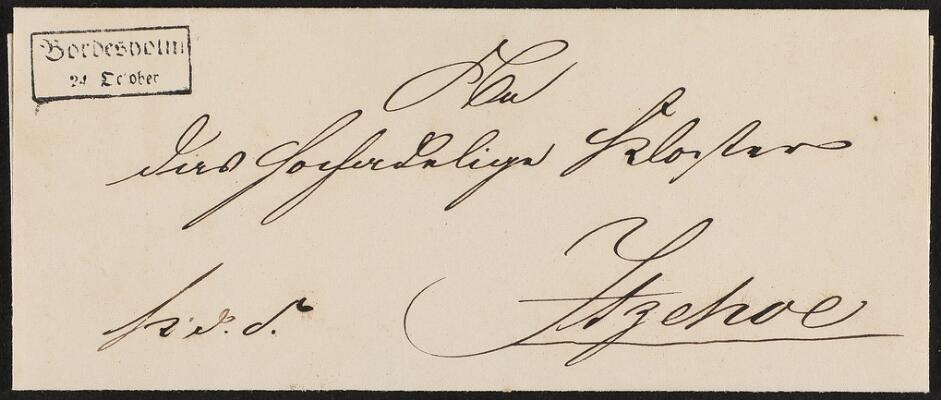 Bordesholm
24 October
An
das hochadelige Kloster
Itzehoe